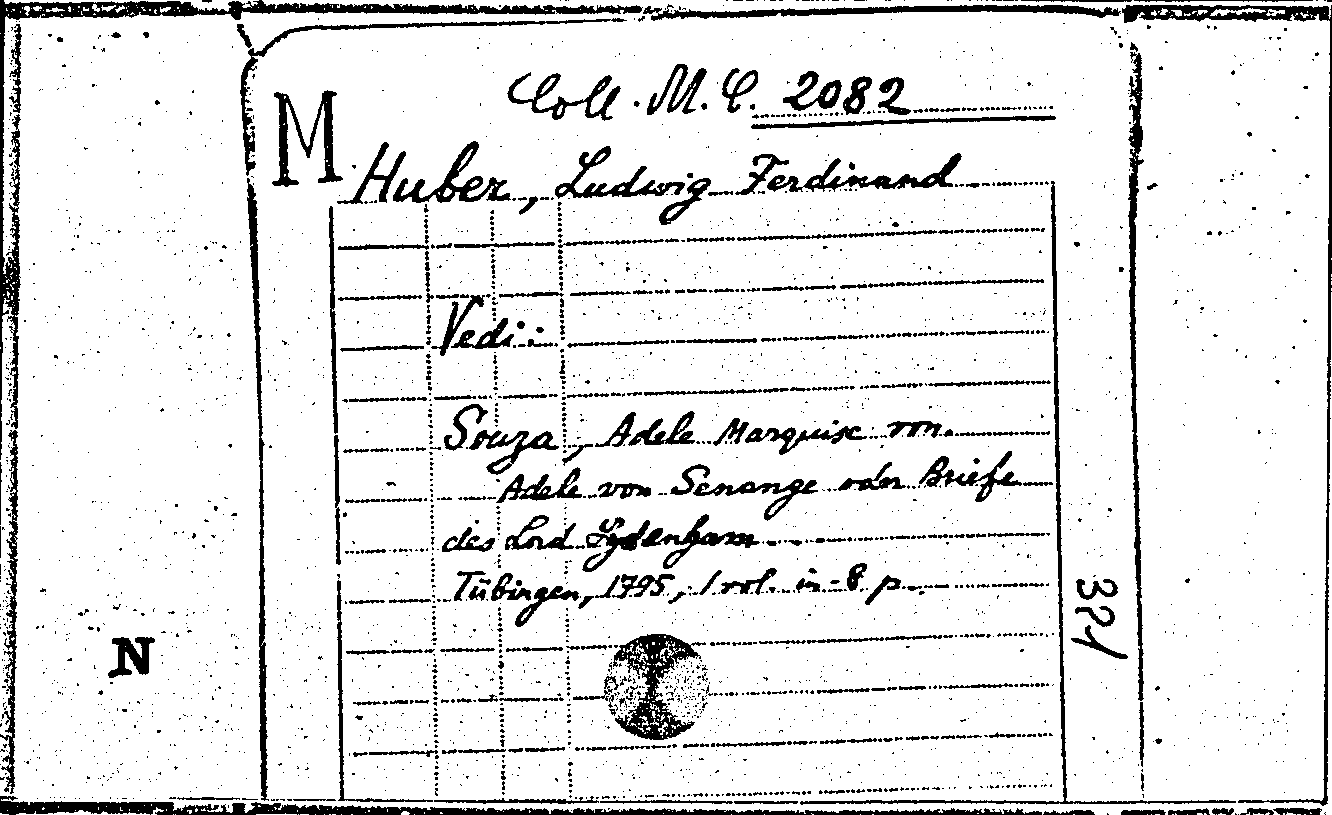 Coll. M. C. 2082
M
Huber, Ludwig Ferdinand
Vedi:
Souza, Adele Marquise von.
Adele von Senange oder Briefe
des Lord Sydenham...
Tübingen, 1795, 1 vol. in-8 p.
321
N